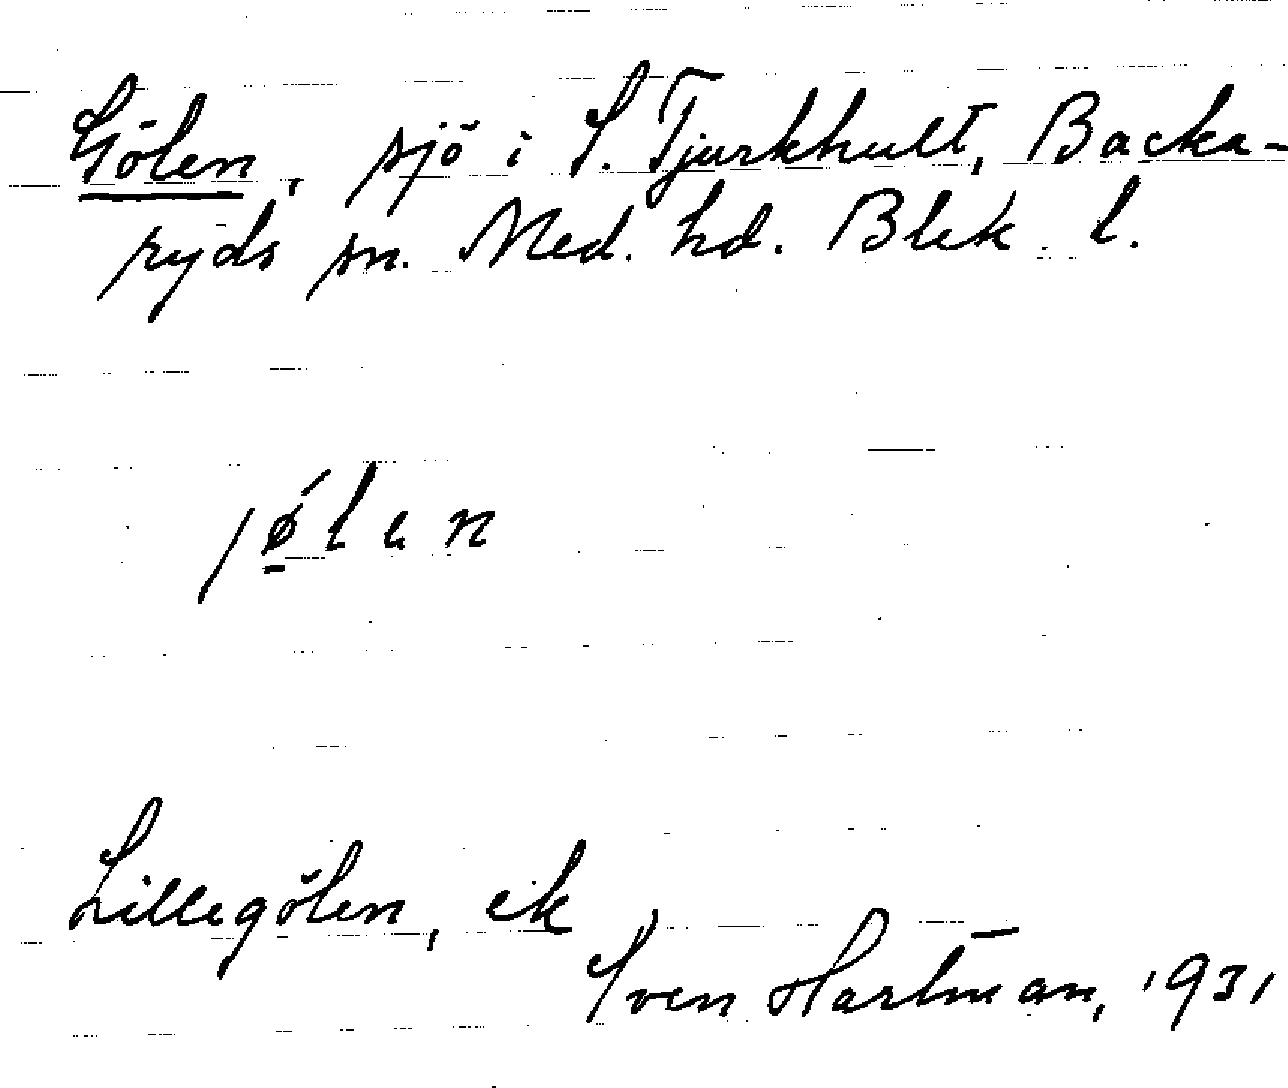 Gölen, sjö i S. Tjurkhult, Backa-
ryds sn. Med. hd. Blek. l.
jǿ̱len
Lillegölen, ek
Sven Hartman, 1931